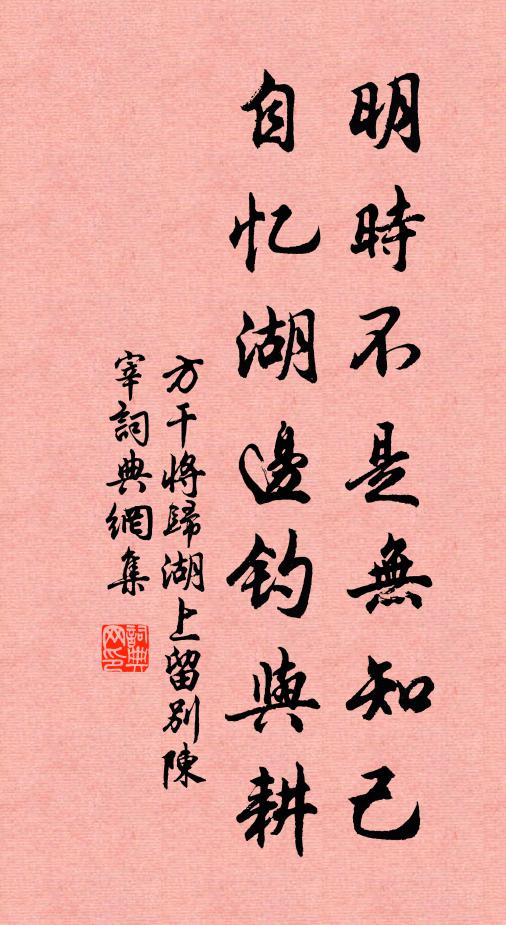 明時不是無知己
自忆湖邊钓與耕
方干将歸湖上留别陳
宰詞典網集
詞典
网印